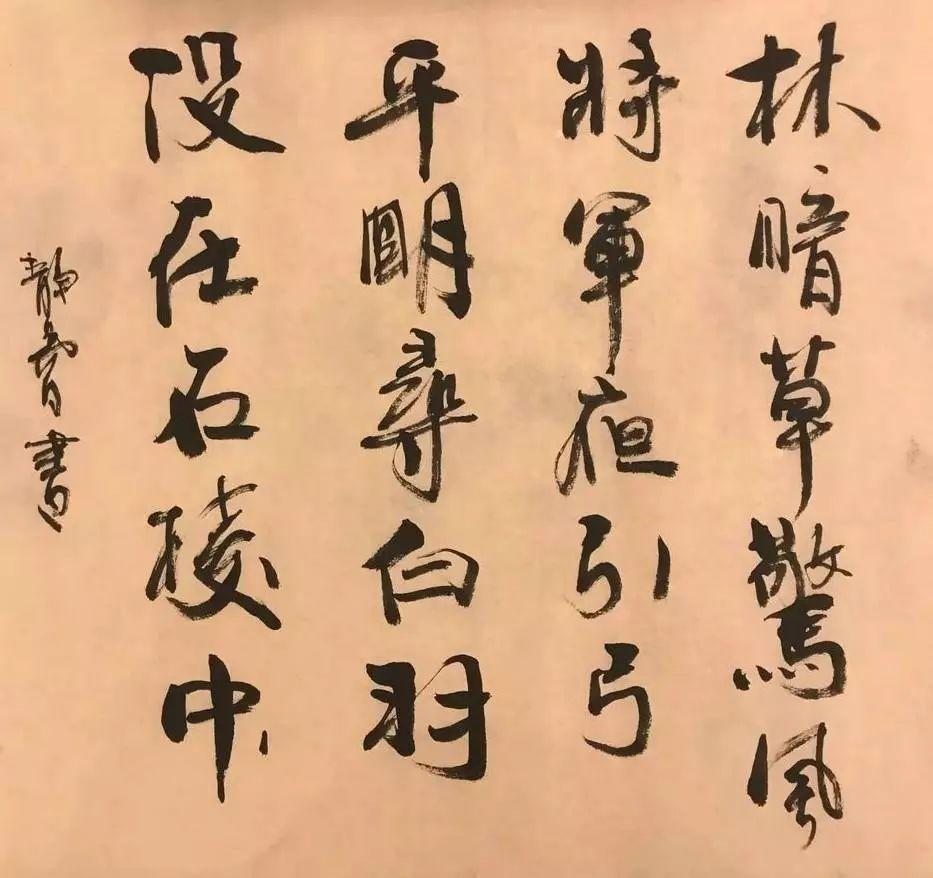 林暗草驚風
將軍夜引弓
平明尋白羽
没在石稜中
靜香書